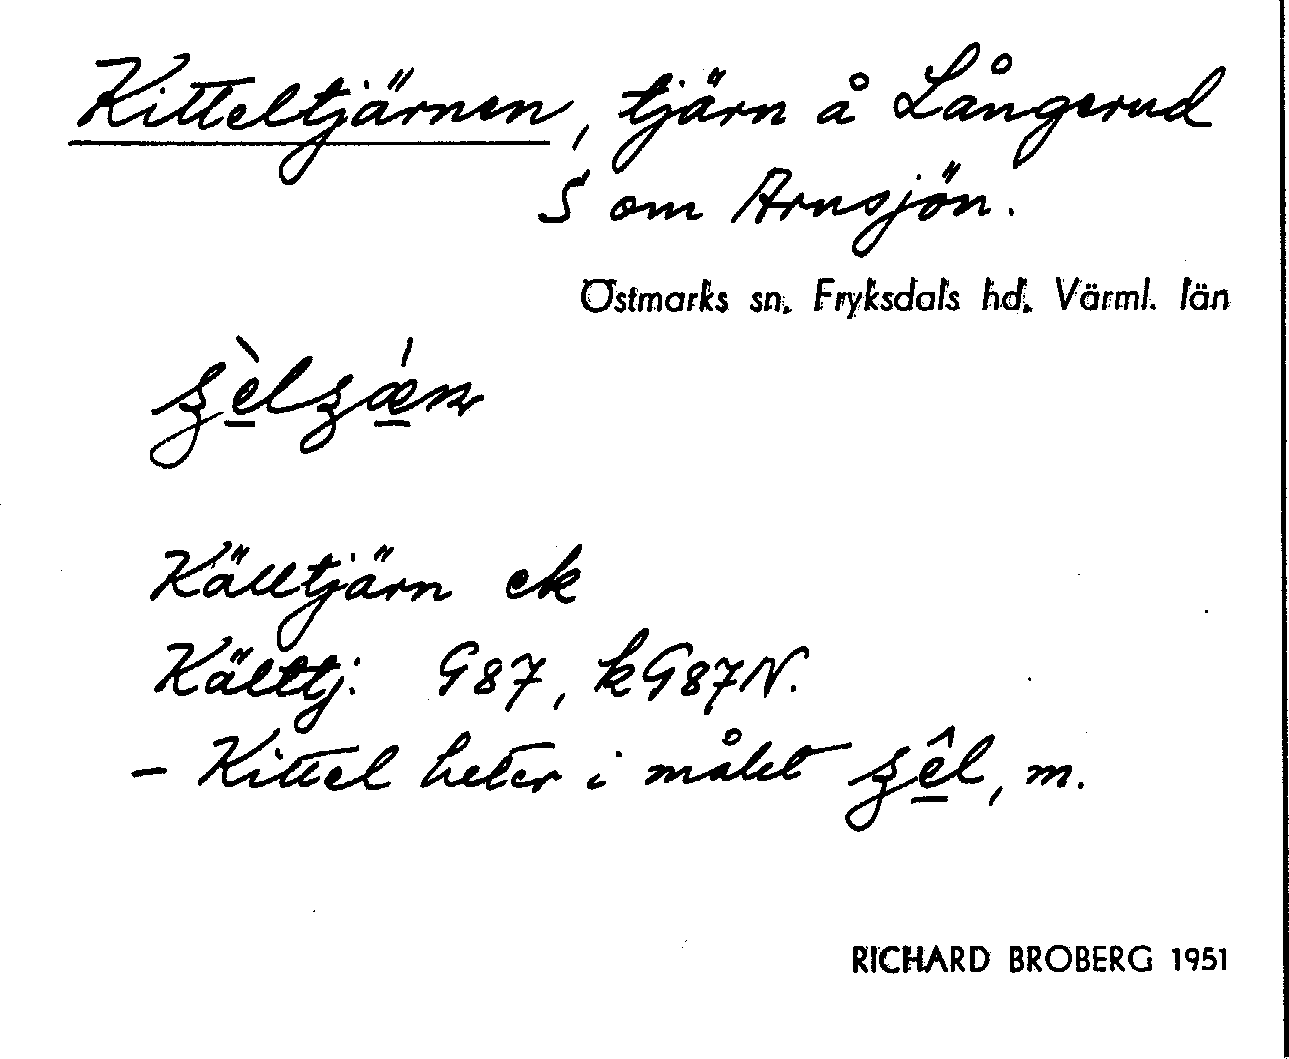 Kitteltjärnen, tjärn å Långerud
S om Arnsjön.
Östmarks sn. Fryksdals hd. Värml. län
Källtjärn ek
Källtj. G87, kG87N.
– Kittel heter i målet , m.
RICHARD BROBERG 1951